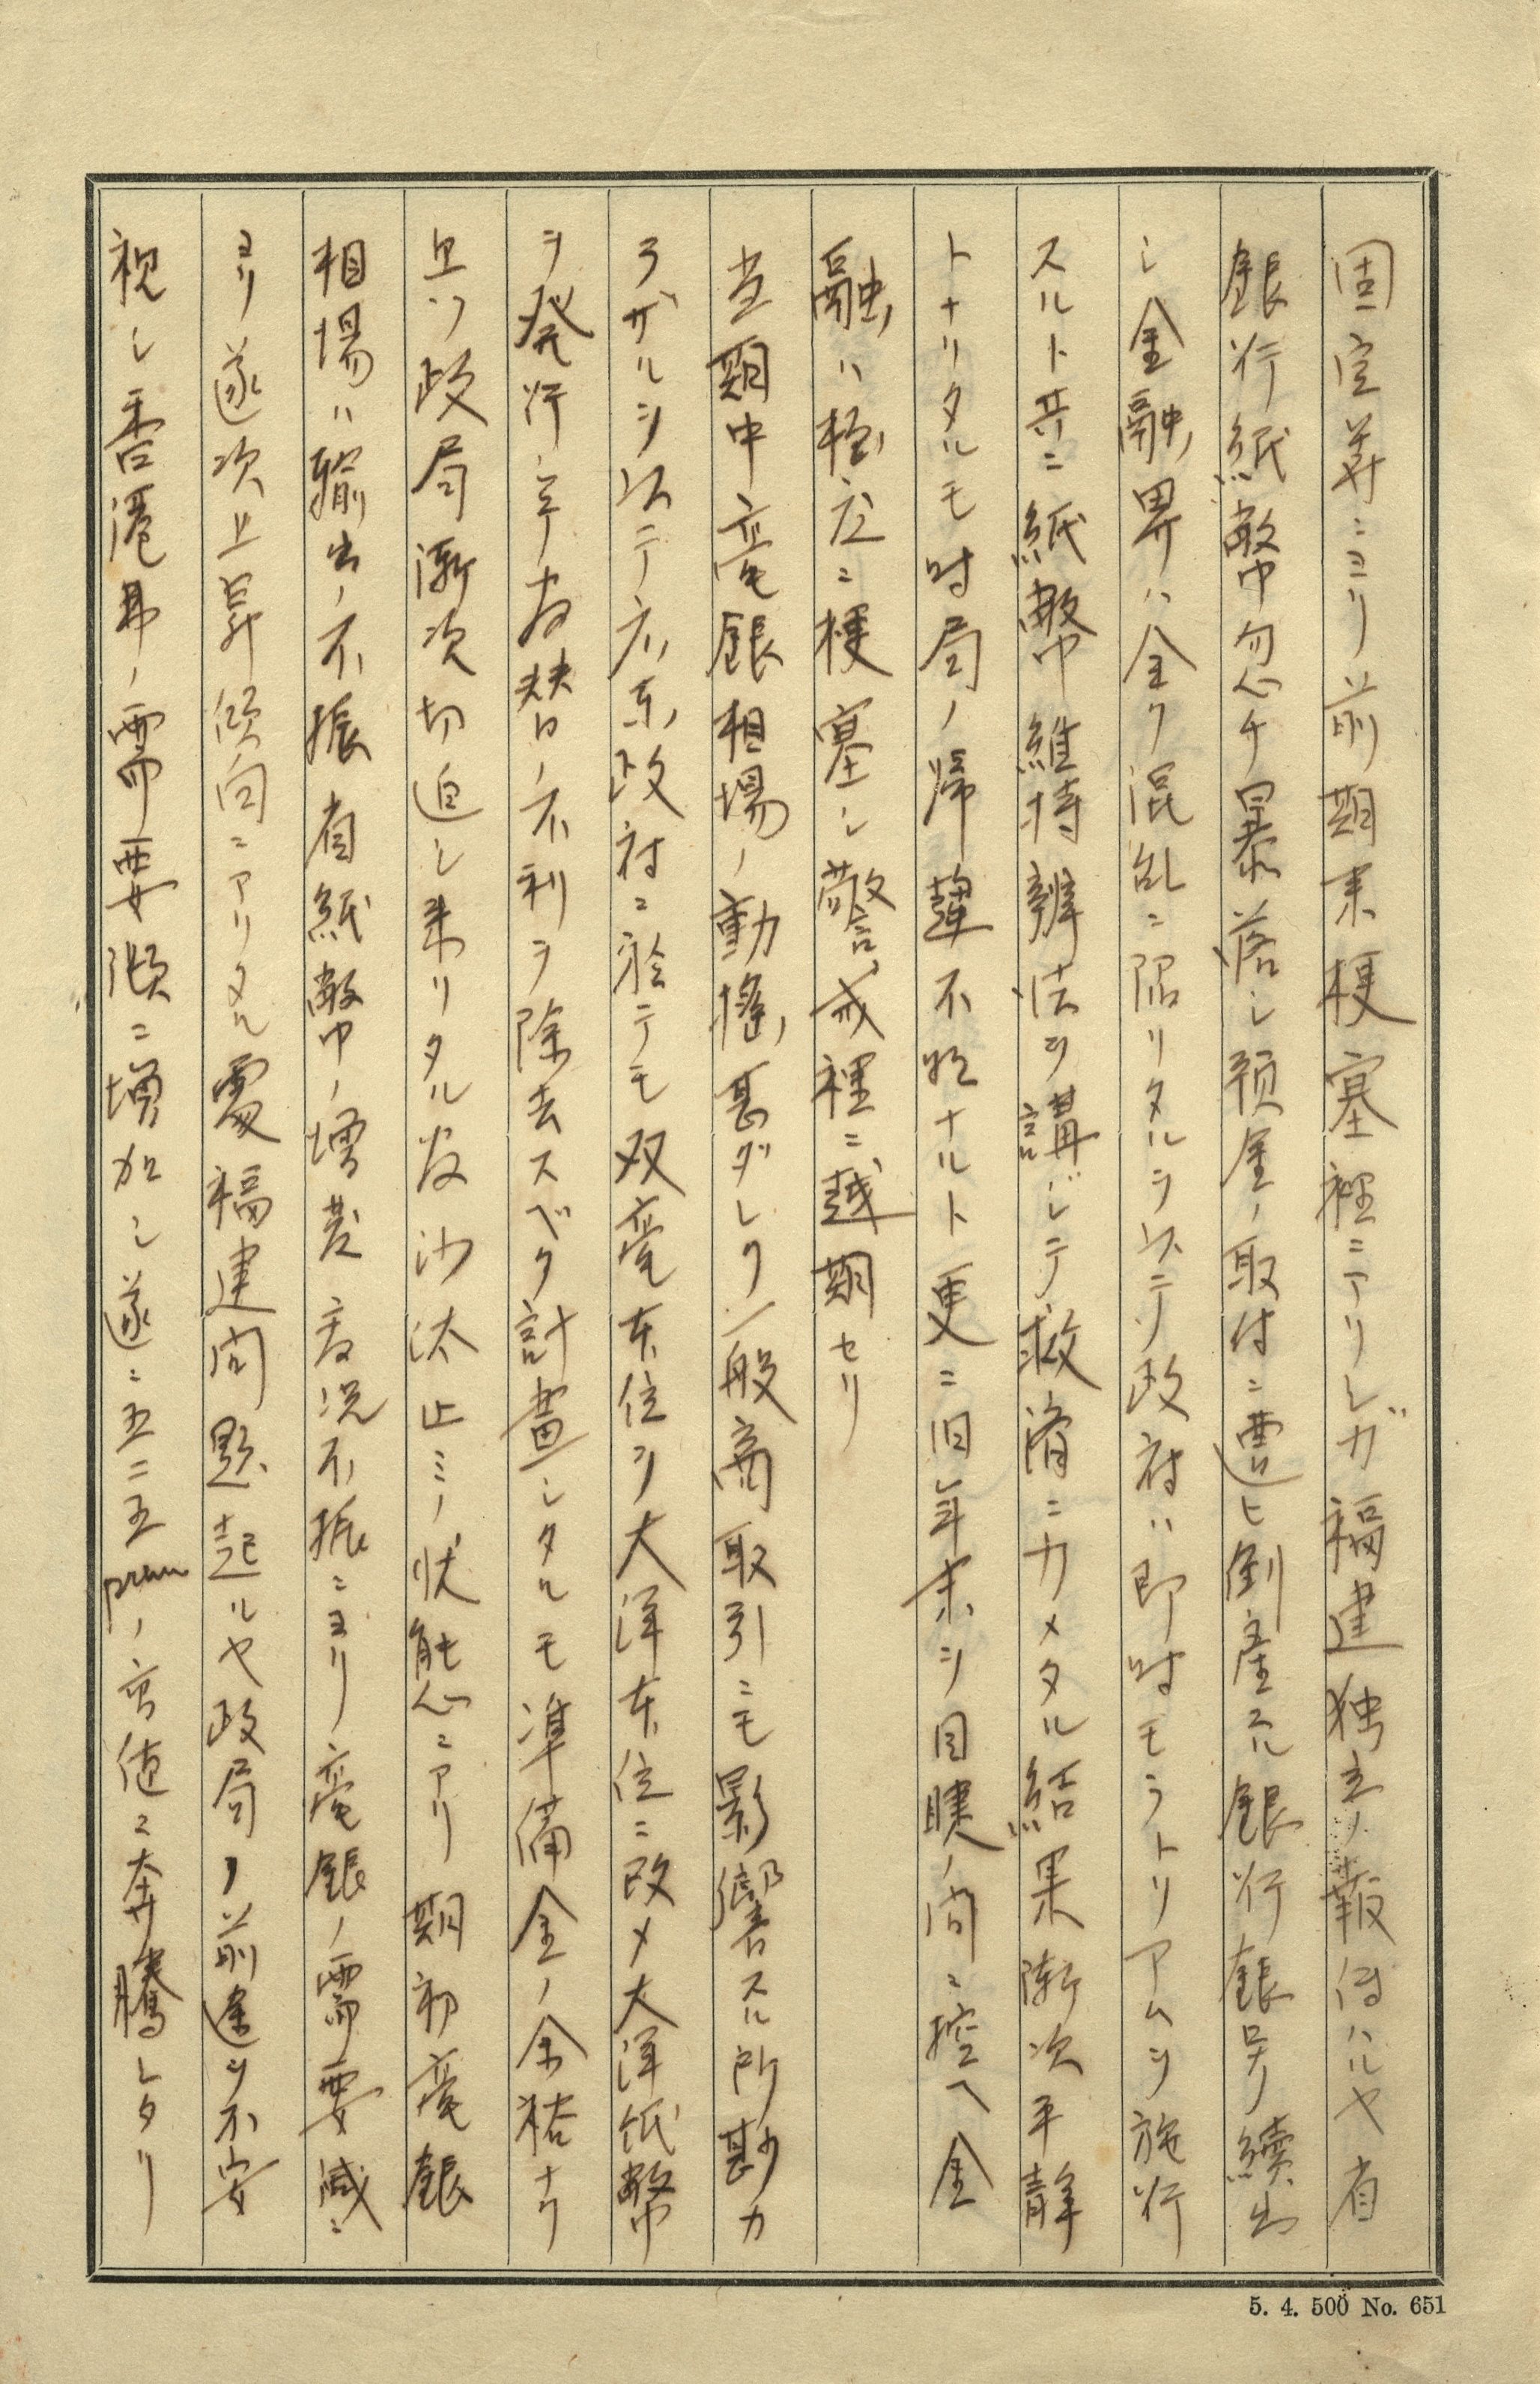 固定等ニヨリ前期末梗塞裡ニアリシガ福建独立ノ報伝ハルヤ省
銀行紙幣忽チ暴落シ預金ノ取付ニ遭ヒ倒産スル銀行銀号続出
シ金融界ハ全ク混乱ニ陥リタルヲ以テ政府ハ即時モラトリアムヲ施行
スルト共ニ紙幣維持辨法ヲ講ジテ救済ニカメタル結果漸次平静
トナリタルモ時局ノ帰趨不明ナルト更ニ旧年末ヲ目睫ノ間ニ控ヘ金
融ハ極度ニ梗塞シ警戒裡ニ越期セリ
当期中毫銀相場ノ動揺甚ダシク一般商取引ニモ影響スル所尠カ
ラザルヲ以テ広東政府ニ於テモ双毫本位ヲ大洋本位ニ改メ大洋紙幣
ヲ発行シテ為替ノ不利ヲ除去スベク計畫シタルモ準備金ノ余裕ナク
且ツ政局漸次切迫シ来リタル為沙汰止ミノ状態ニアリ期初毫銀
相場ハ輸出ノ不振省紙幣ノ増発商況不振ニヨリ毫銀ノ需要減ニ
ヨリ逐次上昇傾向ニアリタル処福建問題起ルヤ政局ノ前途ヲ不安
視シ香港弗ノ需要頓ニ増加シ遂ニ五二五prem.ノ高値ニ奔騰シタリ
5. 4. 500 No. 651